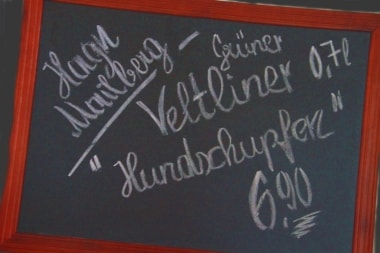 Hagn
Mailberg -
Grüner
Veltliner 0,7l
"Hundschupfen"
6,90